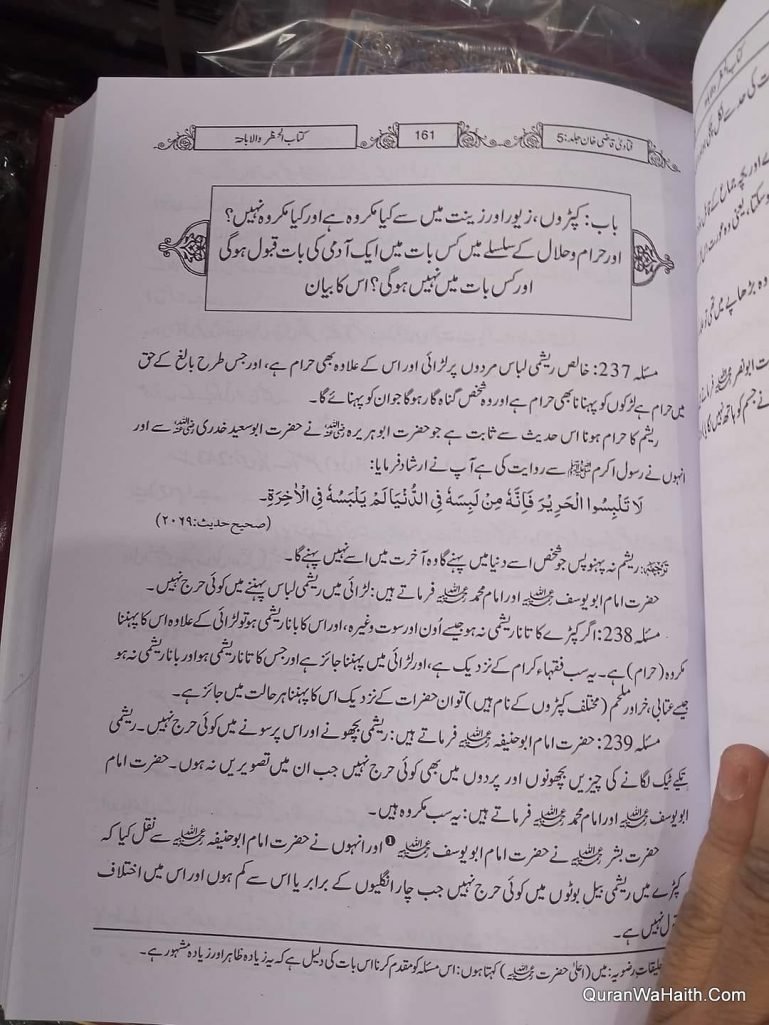 فتاویٰ قاضی خان جلد: 5
161
کتاب الحظر والاباحۃ
باب: کپڑوں، زیور اور زینت میں سے کیا مکروہ ہے اور کیا مکروہ نہیں؟
اور حرام و حلال کے سلسلے میں کس بات میں ایک آدمی کی بات قبول ہوگی
اور کس بات میں نہیں ہوگی؟ اس کا بیان
مسئلہ 237: خالص ریشمی لباس مردوں پر لڑائی اور اس کے علاوہ بھی حرام ہے، اور جس طرح بالغ کے حق
میں حرام ہے لڑکوں کو پہنانا بھی حرام ہے اور وہ شخص گناہ گار ہوگا جو ان کو پہنائے گا۔
ریشم کا حرام ہونا اس حدیث سے ثابت ہے جو حضرت ابو ہریرہ رضی اللہ عنہ نے حضرت ابو سعید خدری رضی اللہ عنہ سے اور
انہوں نے رسول اکرم ﷺ سے روایت کی ہے آپ نے ارشاد فرمایا:
لَا تَلْبِسُوا الْحَرِيْرَ فَاِنَّهٗ مِنْ لَبِسَهٗ فِی الدُّنْيَا لَمْ يَلْبَسْهُ فِی الْاٰخِرَةِ۔
(صحیح حدیث: ۲۰۶۹)
ترجمہ: ریشم نہ پہنو پس جو شخص اسے دنیا میں پہنے گا وہ آخرت میں اسے نہیں پہنے گا۔
حضرت امام ابو یوسف رحمۃ اللہ علیہ اور امام محمد رحمۃ اللہ علیہ فرماتے ہیں: لڑائی میں ریشمی لباس پہننے میں کوئی حرج نہیں۔
مسئلہ 238: اگر کپڑے کا تانا ریشمی نہ ہو جیسے اُون اور سوت وغیرہ، اور اس کا بانا ریشمی ہو تو لڑائی کے علاوہ اس کا پہننا
مکروہ (حرام) ہے۔ یہ سب فقہاء کرام کے نزدیک ہے، اور لڑائی میں پہننا جائز ہے اور جس کا تانا ریشمی ہو اور بانا ریشمی نہ ہو
جیسے عتابی، خز اور ملحم (مختلف کپڑوں کے نام ہیں) تو ان حضرات کے نزدیک اس کا پہننا ہر حالت میں جائز ہے۔
مسئلہ 239: حضرت امام ابو حنیفہ رحمۃ اللہ علیہ فرماتے ہیں: ریشمی بچھونے اور اس پر سونے میں کوئی حرج نہیں۔ ریشمی
تکیے ٹیک لگانے کی چیزیں بچھونوں اور پردوں میں بھی کوئی حرج نہیں جب ان میں تصویریں نہ ہوں۔ حضرت امام
ابو یوسف رحمۃ اللہ علیہ اور امام محمد رحمۃ اللہ علیہ فرماتے ہیں: یہ سب مکروہ ہیں۔
حضرت بشر رحمۃ اللہ علیہ نے حضرت امام ابو یوسف رحمۃ اللہ علیہ ❶ اور انہوں نے حضرت امام ابو حنیفہ رحمۃ اللہ علیہ سے نقل کیا کہ
کپڑے میں ریشمی بیل بوٹوں میں کوئی حرج نہیں جب چار انگلیوں کے برابر یا اس سے کم ہوں اور اس میں اختلاف
نہیں ہے۔
رضویہ: میں (اعلیٰ حضرت رحمۃ اللہ علیہ) کہتا ہوں: اس مسئلہ کو مقدم کرنا اس بات کی دلیل ہے کہ یہ زیادہ ظاہر اور زیادہ مشہور ہے۔
QuranWaHaith.Com